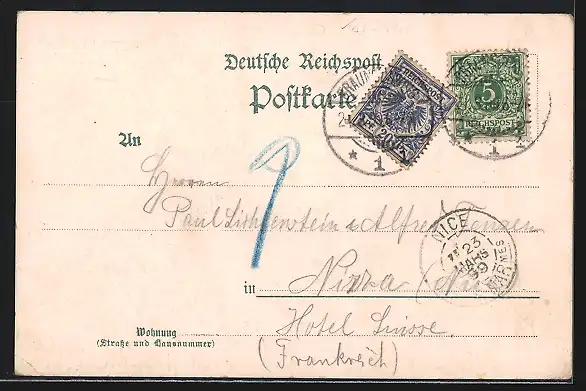 Deutsche Reichspost
Postkarte
REICHSPOST
20
5
REICHSPOST
1
1
An
Herren
Paul Lichtenstein & Alfred
NICE
23
MARS
99
in Nizza
Hotel Suisse
(Frankreich)
Wohnung
(Straße und Hausnummer)
1